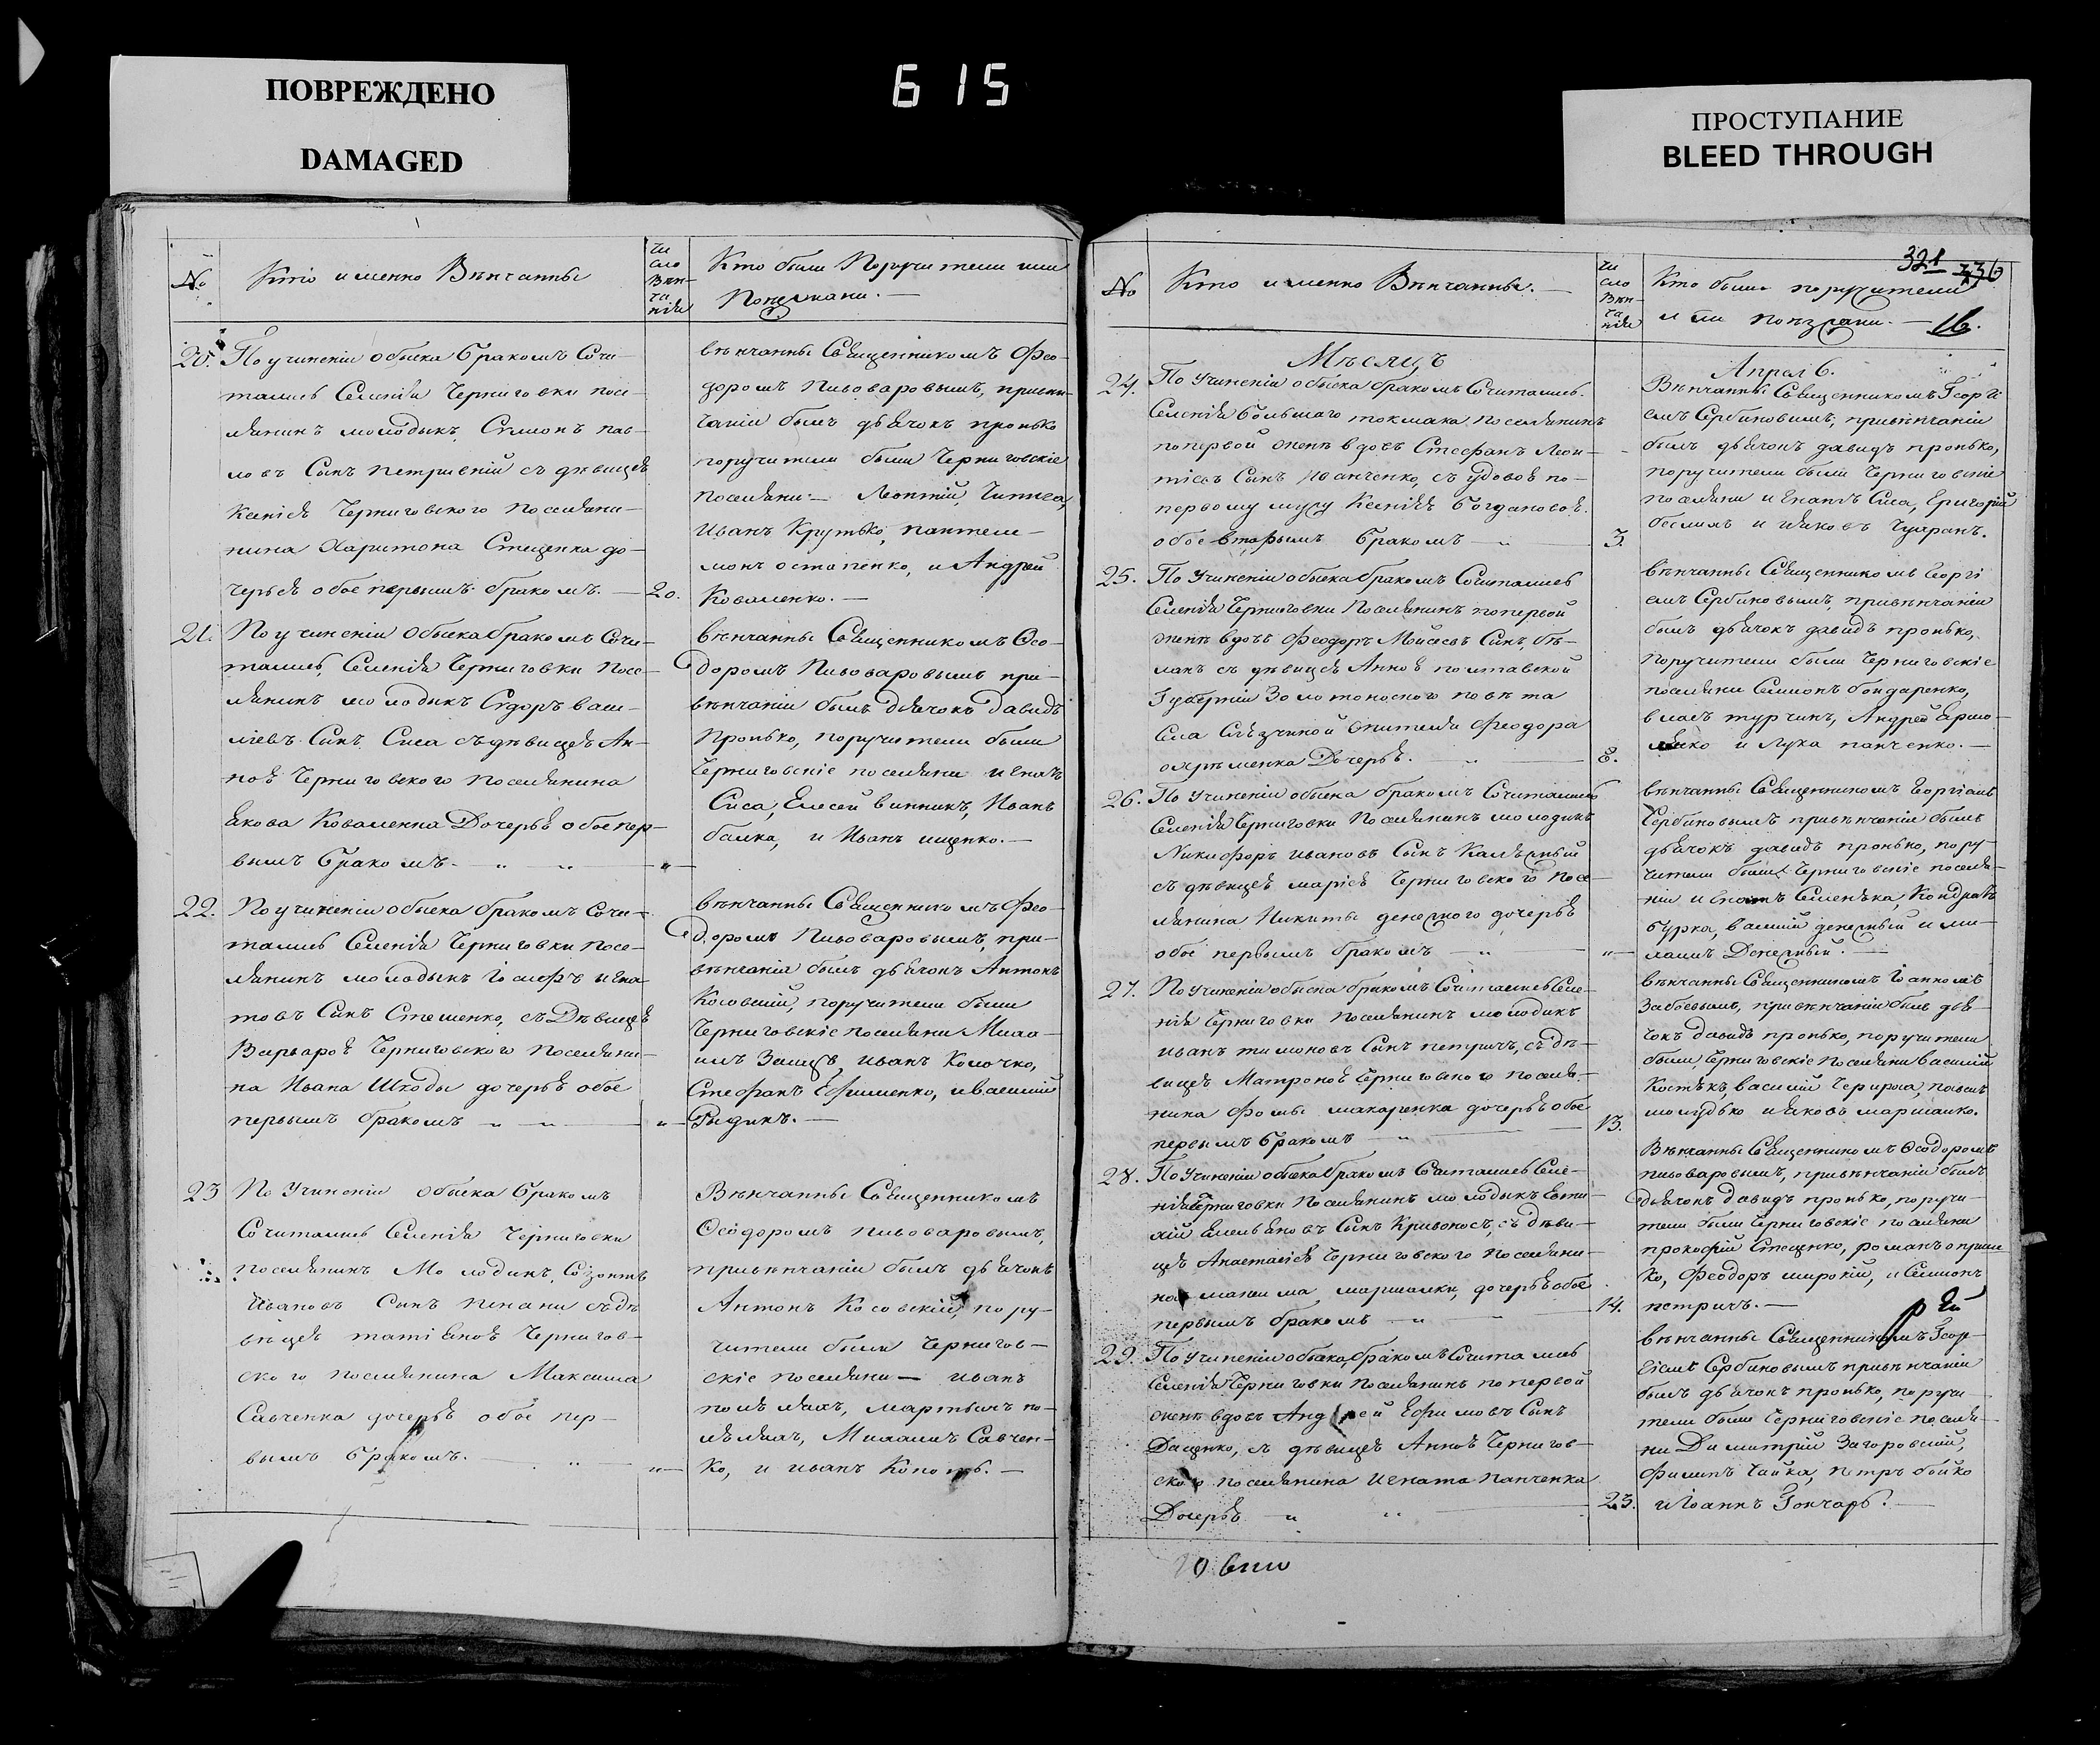 ПОВРЕЖДЕНО
DAMAGED
615
ПРОСТУПАНИЕ
BLEED THROUGH
№
Кто именно Вѣнчанны
чи
сло
Вѣн-
ча
нія
Кто были Поручители или
Поезжани. —
20.
По учиненіи обыска бракомъ Сочи-
тались Селенія Черниговки посе-
лянинъ молодыкъ Сѵмеонъ пав-
ловъ Сынъ петривній съ дѣвицей
Ксенiей Черниговского поселяни-
нина Харитона Стеценка до-
черьей обое первымъ бракомъ. —
20.
вѣнчанны Священникомъ Фео-
доромъ Пивоваровымъ, привен-
чаніи былъ дьячокъ пронько
поручители были Черниговскіе
поселяни:— Леонтій,
Иванъ Крутько, пантеле-
монъ остапенко, и Андрей
Коваленко. —
21.
По учиненіи обыска бракомъ Сочи-
тались, Селенія Черниговки посе-
лянинъ молодыкъ Сидоръ васи-
ліевъ Сынъ Сиса съ дѣвицей Ан-
ной Черниговского поселянина
Якова Коваленка Дочерьей обое пер-
вымъ бракомъ. — „ — „ —
„
вѣнчанны Священникомъ Ѳео-
доромъ Пивоваровымъ при-
вѣнчаніи былъ дьячокъ Давидъ
Пронько, поручители были
Черниговскіе поселяни игнатъ
Сиса, Елесей винникъ, Иванъ
балка, и Иванъ ищенко. —
22.
По учиненіи обыска бракомъ Сочи-
тались Селенія Черниговки посе-
лянинъ молодыкъ Іосифъ игна-
товъ Сынъ Стешенко, съ Дѣвицей
Варварой Черниговского поселяни-
на Ивана Шкоды дочерьей обое
первымъ бракомъ „ — „ —
„
вѣнчанны Священникомъ Фео-
доромъ Пивоваровымъ, при-
вѣнчаніи былъ дьячокъ Антонъ
Косовскій, поручители были
Черниговскіе поселяни Миха-
илъ Заецъ, иванъ Колочко,
Стефанъ Ефименко, ивасилій
Рыдикъ. —
23
По Учиненіи обыска бракомъ
Сочитались Селенія Черниговки
поселянинъ Молодикъ, Созонтъ
Ивановъ Сынъ съ дѣ
вицей татіяной Чернигов-
ского поселянина Максима
Савченка дочерьей обое пер-
вымъ бракомъ. — „
„
Вѣнчанны Священникомъ
Ѳеодоромъ пивоваровымъ,
привѣнчаніи былъ дьячокъ
Антонъ Косовскій, пору-
чители были Чернигов-
скіе поселяни — иванъ
мартынъ
Михаилъ Савчен-
ко, и иванъ Копоть. —
321
336
16.
№
Кто именно Вѣнчанны. —
чи
сло
Вѣн-
ча
нія
Кто были поручители
или поезжани. —
Мѣсяцъ
Апрель.
24.
По Учиненіи обыска бракомъ Сочитались.
Селенія большаго токмака, поселянинъ
попервой жене вдовъ Стефанъ Леон-
тіевъ Сынъ Иванченко, съ удовой по-
первому мужу Ксеніей богдановой.
обое вторымъ бракомъ — „
3.
Вѣнчанны Священникомъ Георгі
емъ Сербиновымъ, привѣнчаніи
былъ дьячокъ давидъ пронько,
поручители были Черниговскіе
поселяни игнатъ Сиса, Григорій
беликъ и яковъ
25.
По Учиненіи обыска бракомъ Сочитались
Селенія Черниговки Поселянинъ попервой
жене вдовъ Феодоръ Мойсеевъ Сынъ, бѣ-
лакъ съ дѣвицей Анной полтавской
Губерніи Золотоноского повѣта
Села жителя Феодора
охрѣменка Дочерьей. — „
8.
вѣнчанны Священникомъ Георгі
емъ Сербиновымъ, привѣнчаніи
былъ дьячокъ давидъ пронько,
поручители были Черниговскіе
поселяни Семіонъ бондаренко,
власъ турчинъ, Андрей Ермо-
ленко и Лука панченко. —
26.
По Учиненіи обыска бракомъ Сочитались
Селенія Черниговки Поселянинъ молодикъ
Никифоръ ивановъ Сынъ
съ дѣвицей маріей Черниговского посе-
лянина Никиты дочерьей
обое первымъ бракомъ — „
„
вѣнчанны Священникомъ Георгіемъ
Сербиновымъ привѣнчаніи былъ
дьячокъ давидъ пронько, пору-
чители были Черниговскіе поселя-
ни игнатъ Семенька, Кондратъ
бурка, василій и ми-
27.
По учиненіи обыска бракомъ Сочитались Селе-
нія Черниговки поселянинъ молодикъ
иванъ тимоновъ Сынъ петричъ, съ дѣ-
вицей Матроной Черниговского поселя-
нина Фомы макаренка дочерьей обое
первымъ бракомъ — „
13.
вѣнчанны Священникомъ Іоанномъ
Забоевымъ, привѣнчаніи былъ дья-
чокъ давидъ пронько, поручители
были, Черниговскіе поселяни василій
Костюкъ, василій павелъ
и яковъ маршалко.
28.
По Учиненіи обыска бракомъ Сочитались Селе-
нія Черниговки поселянинъ молодыкъ Евти-
хій Емельяновъ Сынъ Кривоносъ, съ дѣви-
цей Анастасіей Черниговского поселяни-
на максима маршалки, дочерьей обое
первымъ бракомъ — „
14.
Вѣнчанны Священникомъ Ѳеодоромъ
пивоваровымъ, привѣнчаніи былъ
дьячокъ Давидъ пронько, поручи-
тели были Черниговскіе поселяни
прокофій Стеценко, романъ
ко, Феодоръ широкій, и Семионъ
петричъ. —
29.
По учиненіи обыска бракомъ Сочитались
Селенія Черниговки поселянинъ попервой
жене вдовъ Андрей Ефимовъ Сынъ
Даценко, съ дѣвицей Анной Чернигов-
ского поселянина игната панченка
Дочерьей „ „
23.
вѣнчанны Священникомъ Геор-
гіемъ Сербиновымъ привѣнчаніи
былъ дьячокъ пронько, поручи-
тели были Черниговскіе поселя-
ни Димитрій Загоровскій,
Филипъ Чайка, петръ бойко
и Іоаннъ Гончарь. —